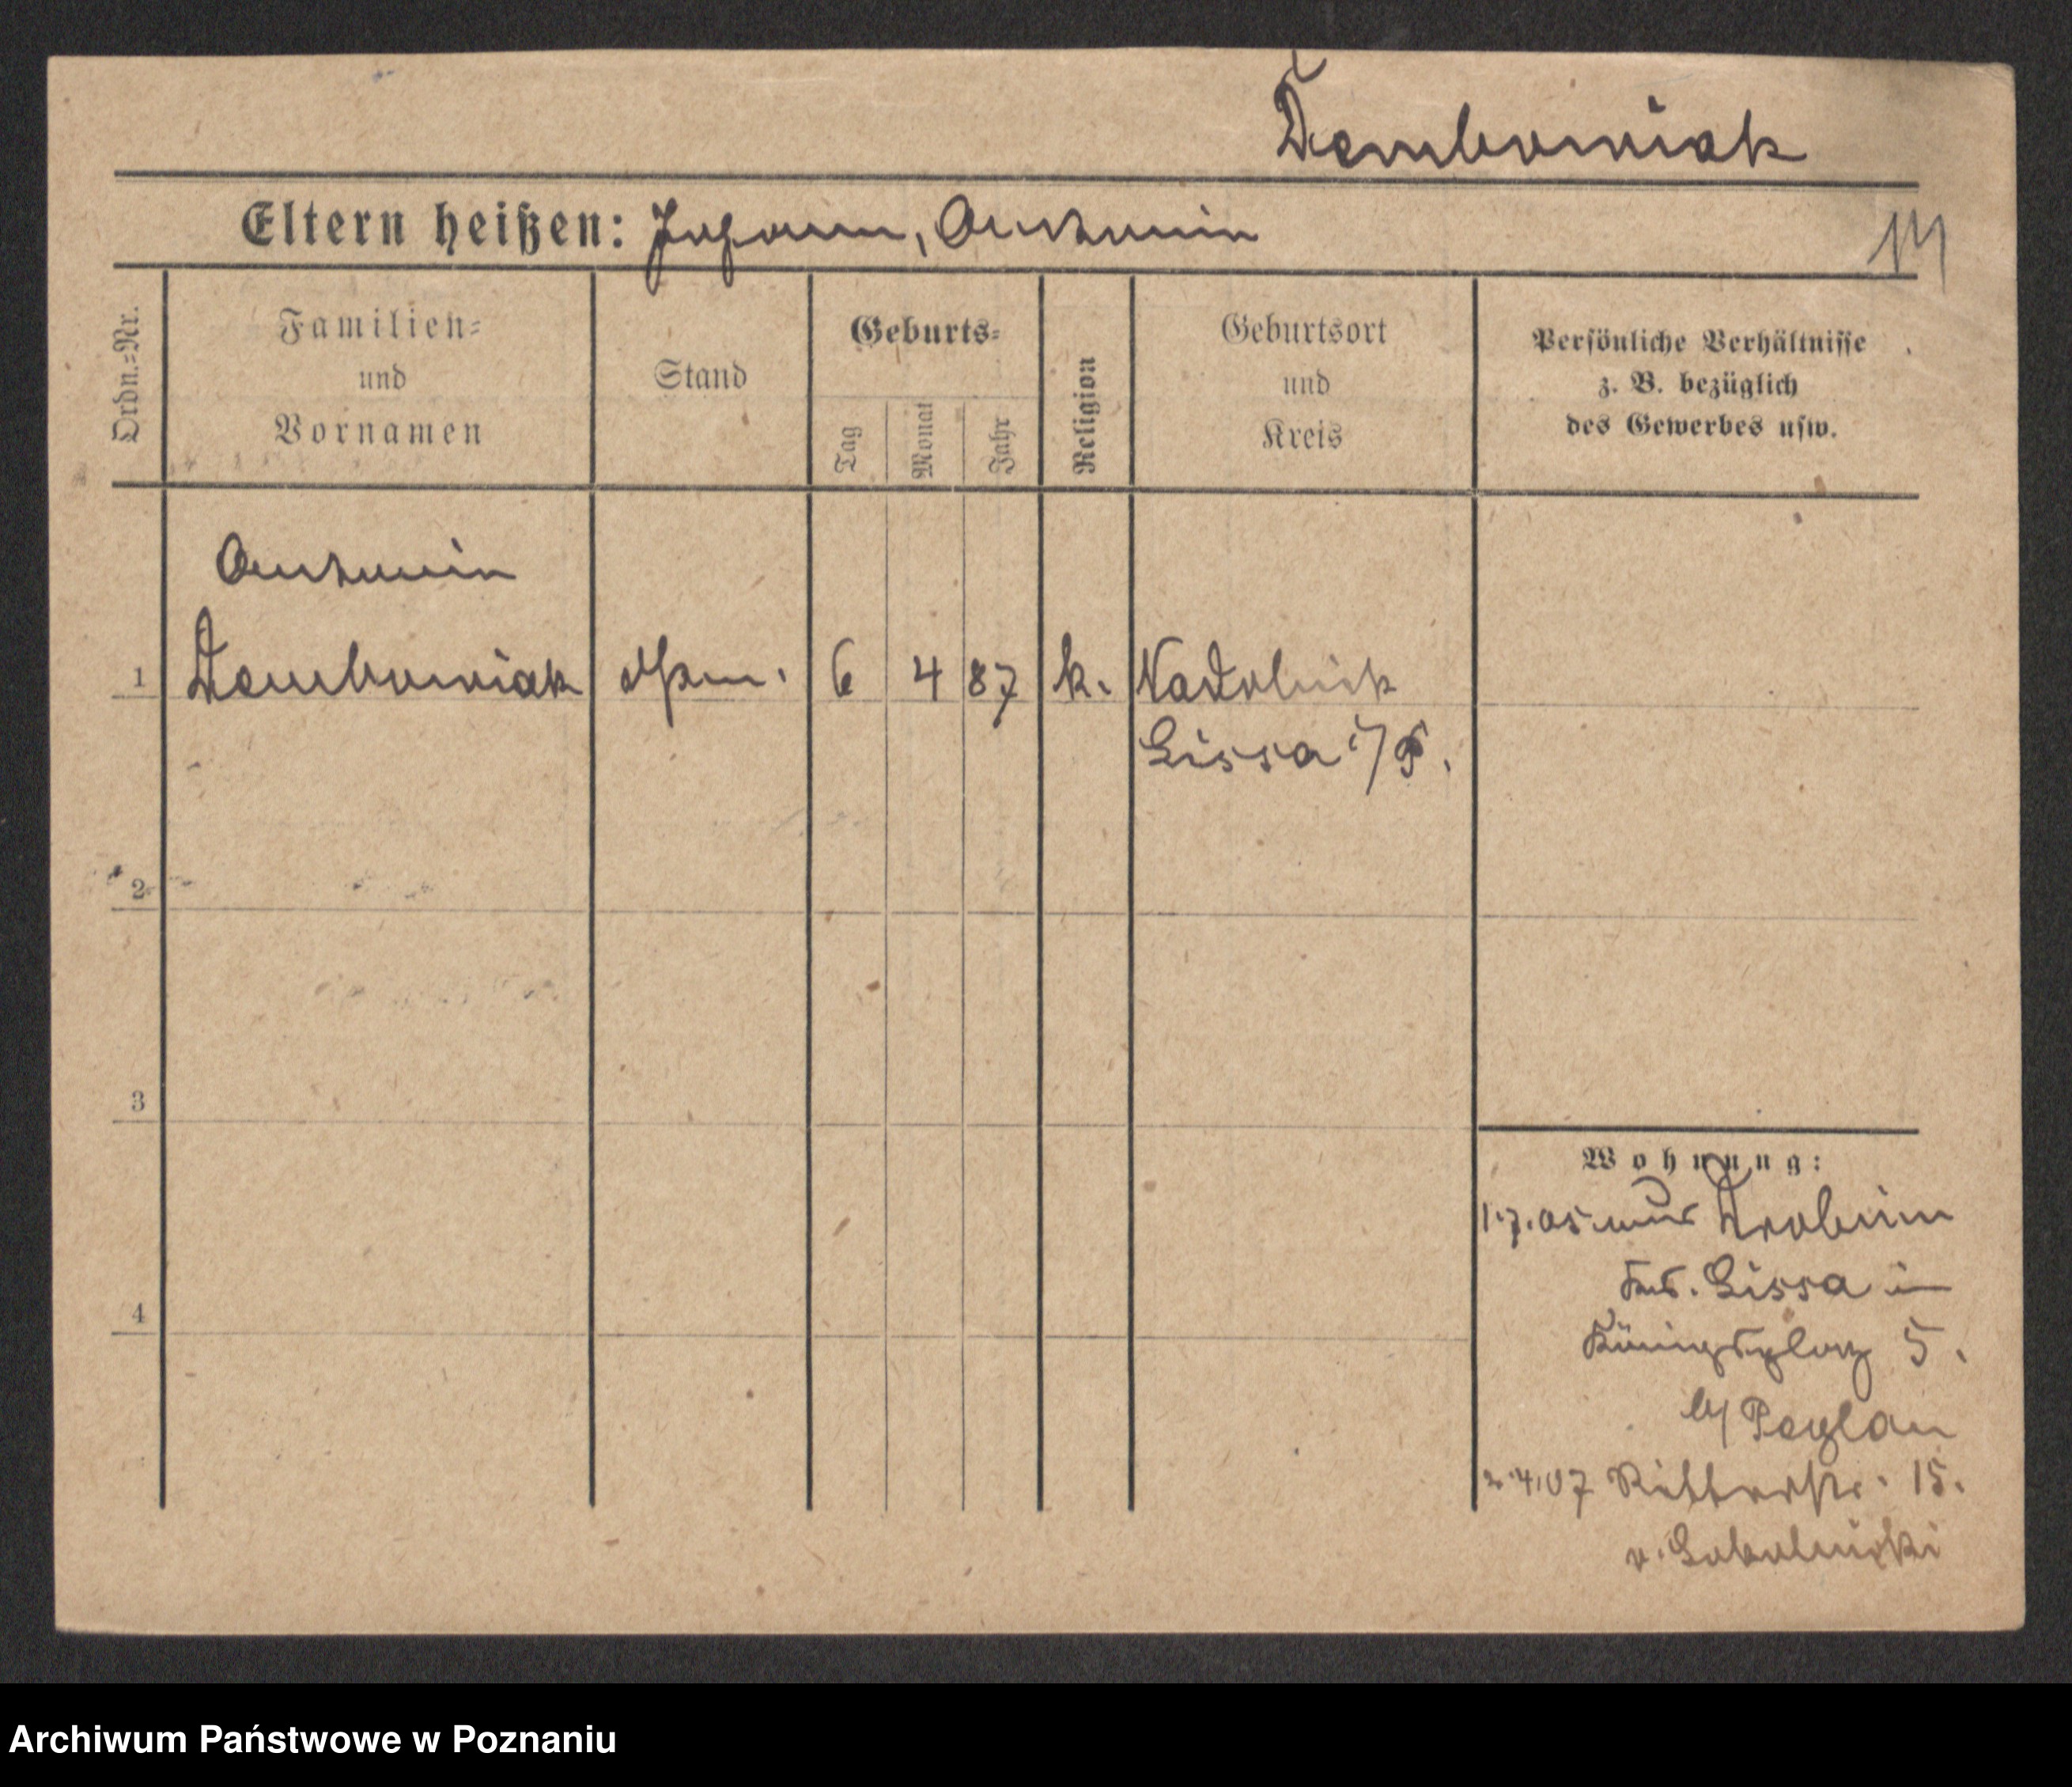 Demboniak
Eltern heißen: Johann, Antonin
Ordn.=Nr.
Familien=
und
Vornamen
Stand
Geburts=
Tag
Monat
Jahr
Religion
Geburtsort
und
Kreis
Persönliche Verhältnisse
z. B. bezüglich
des Gewerbes usw.
Antonin
1 Demboniak 6 4 87 k. Nadolnik
Lissa i/P.
2
3
4
Wohnung:
1.7.05 aus Drobnin
Krs. Lissa in
Königsplatz 5.
b/
2.4.07 Ritterstr. 15.
v. Sokolnicki
Archiwum Państwowe w Poznaniu